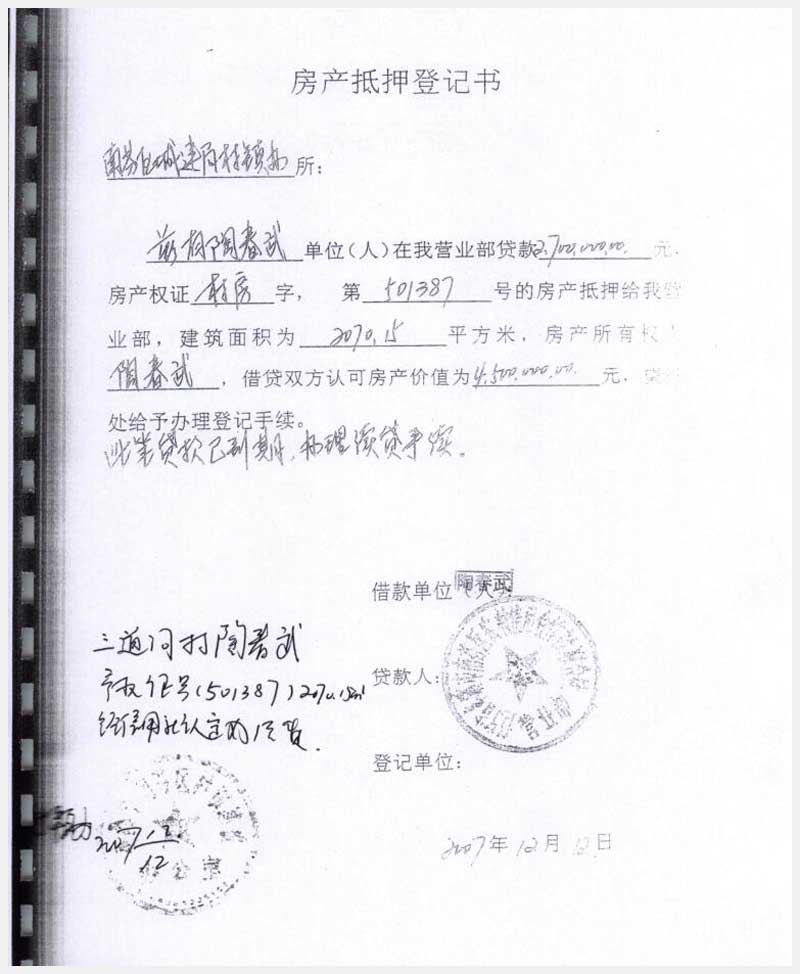 房产抵押登记书
所：
兹有陶春武单位(人)在我营业部贷款2,700,000.00.元.
房产权证 村房 字， 第 501387 号的房产抵押给我营
业部，建筑面积为 2070.15 平方米，房产所有权
陶春武，借贷双方认可房产价值为4,500,000.00.元.
处给予办理登记手续。
此笔贷款已到期，办理续贷手续。
借款单位
陶春武
三道河村陶春武
产权证号(501387)2070.15m²
经信用社认定
贷款人：
登记单位：
2007.12.
12
公室
2007年12月12日